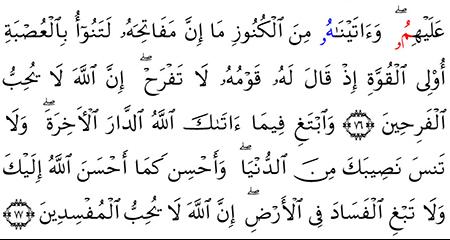 عَلَيْهِمُۥ ۖ وَءَاتَيْنَٰهُۥ مِنَ اَ۬لْكُنُوزِ مَا إِنَّ مَفَاتِحَهُۥ لَتَنُوٓأُ بِالْعُصْبَةِ
أُوْلِى اِ۬لْقُوَّةِ إِذْ قَالَ لَهُۥ قَوْمُهُۥ لَا تَفْرَحْ ۖ إِنَّ اَ۬للَّهَ لَا يُحِبُّ
اُ۬لْفَرِحِينَ ۝٧٦ وَابْتَغِ فِيمَا ءَاتَىٰكَ اَ۬للَّهُ اُ۬لدَّارَ اَ۬لْأَخِرَةَ ۖ وَلَا
تَنسَ نَصِيبَكَ مِنَ اَ۬لدُّنْيَا ۖ وَأَحْسِن كَمَا أَحْسَنَ اَ۬للَّهُ إِلَيْكَ
وَلَا تَبْغِ اِ۬لْفَسَادَ فِى اِ۬لْأَرْضِ ۖ إِنَّ اَ۬للَّهَ لَا يُحِبُّ اُ۬لْمُفْسِدِينَ ۝٧٧